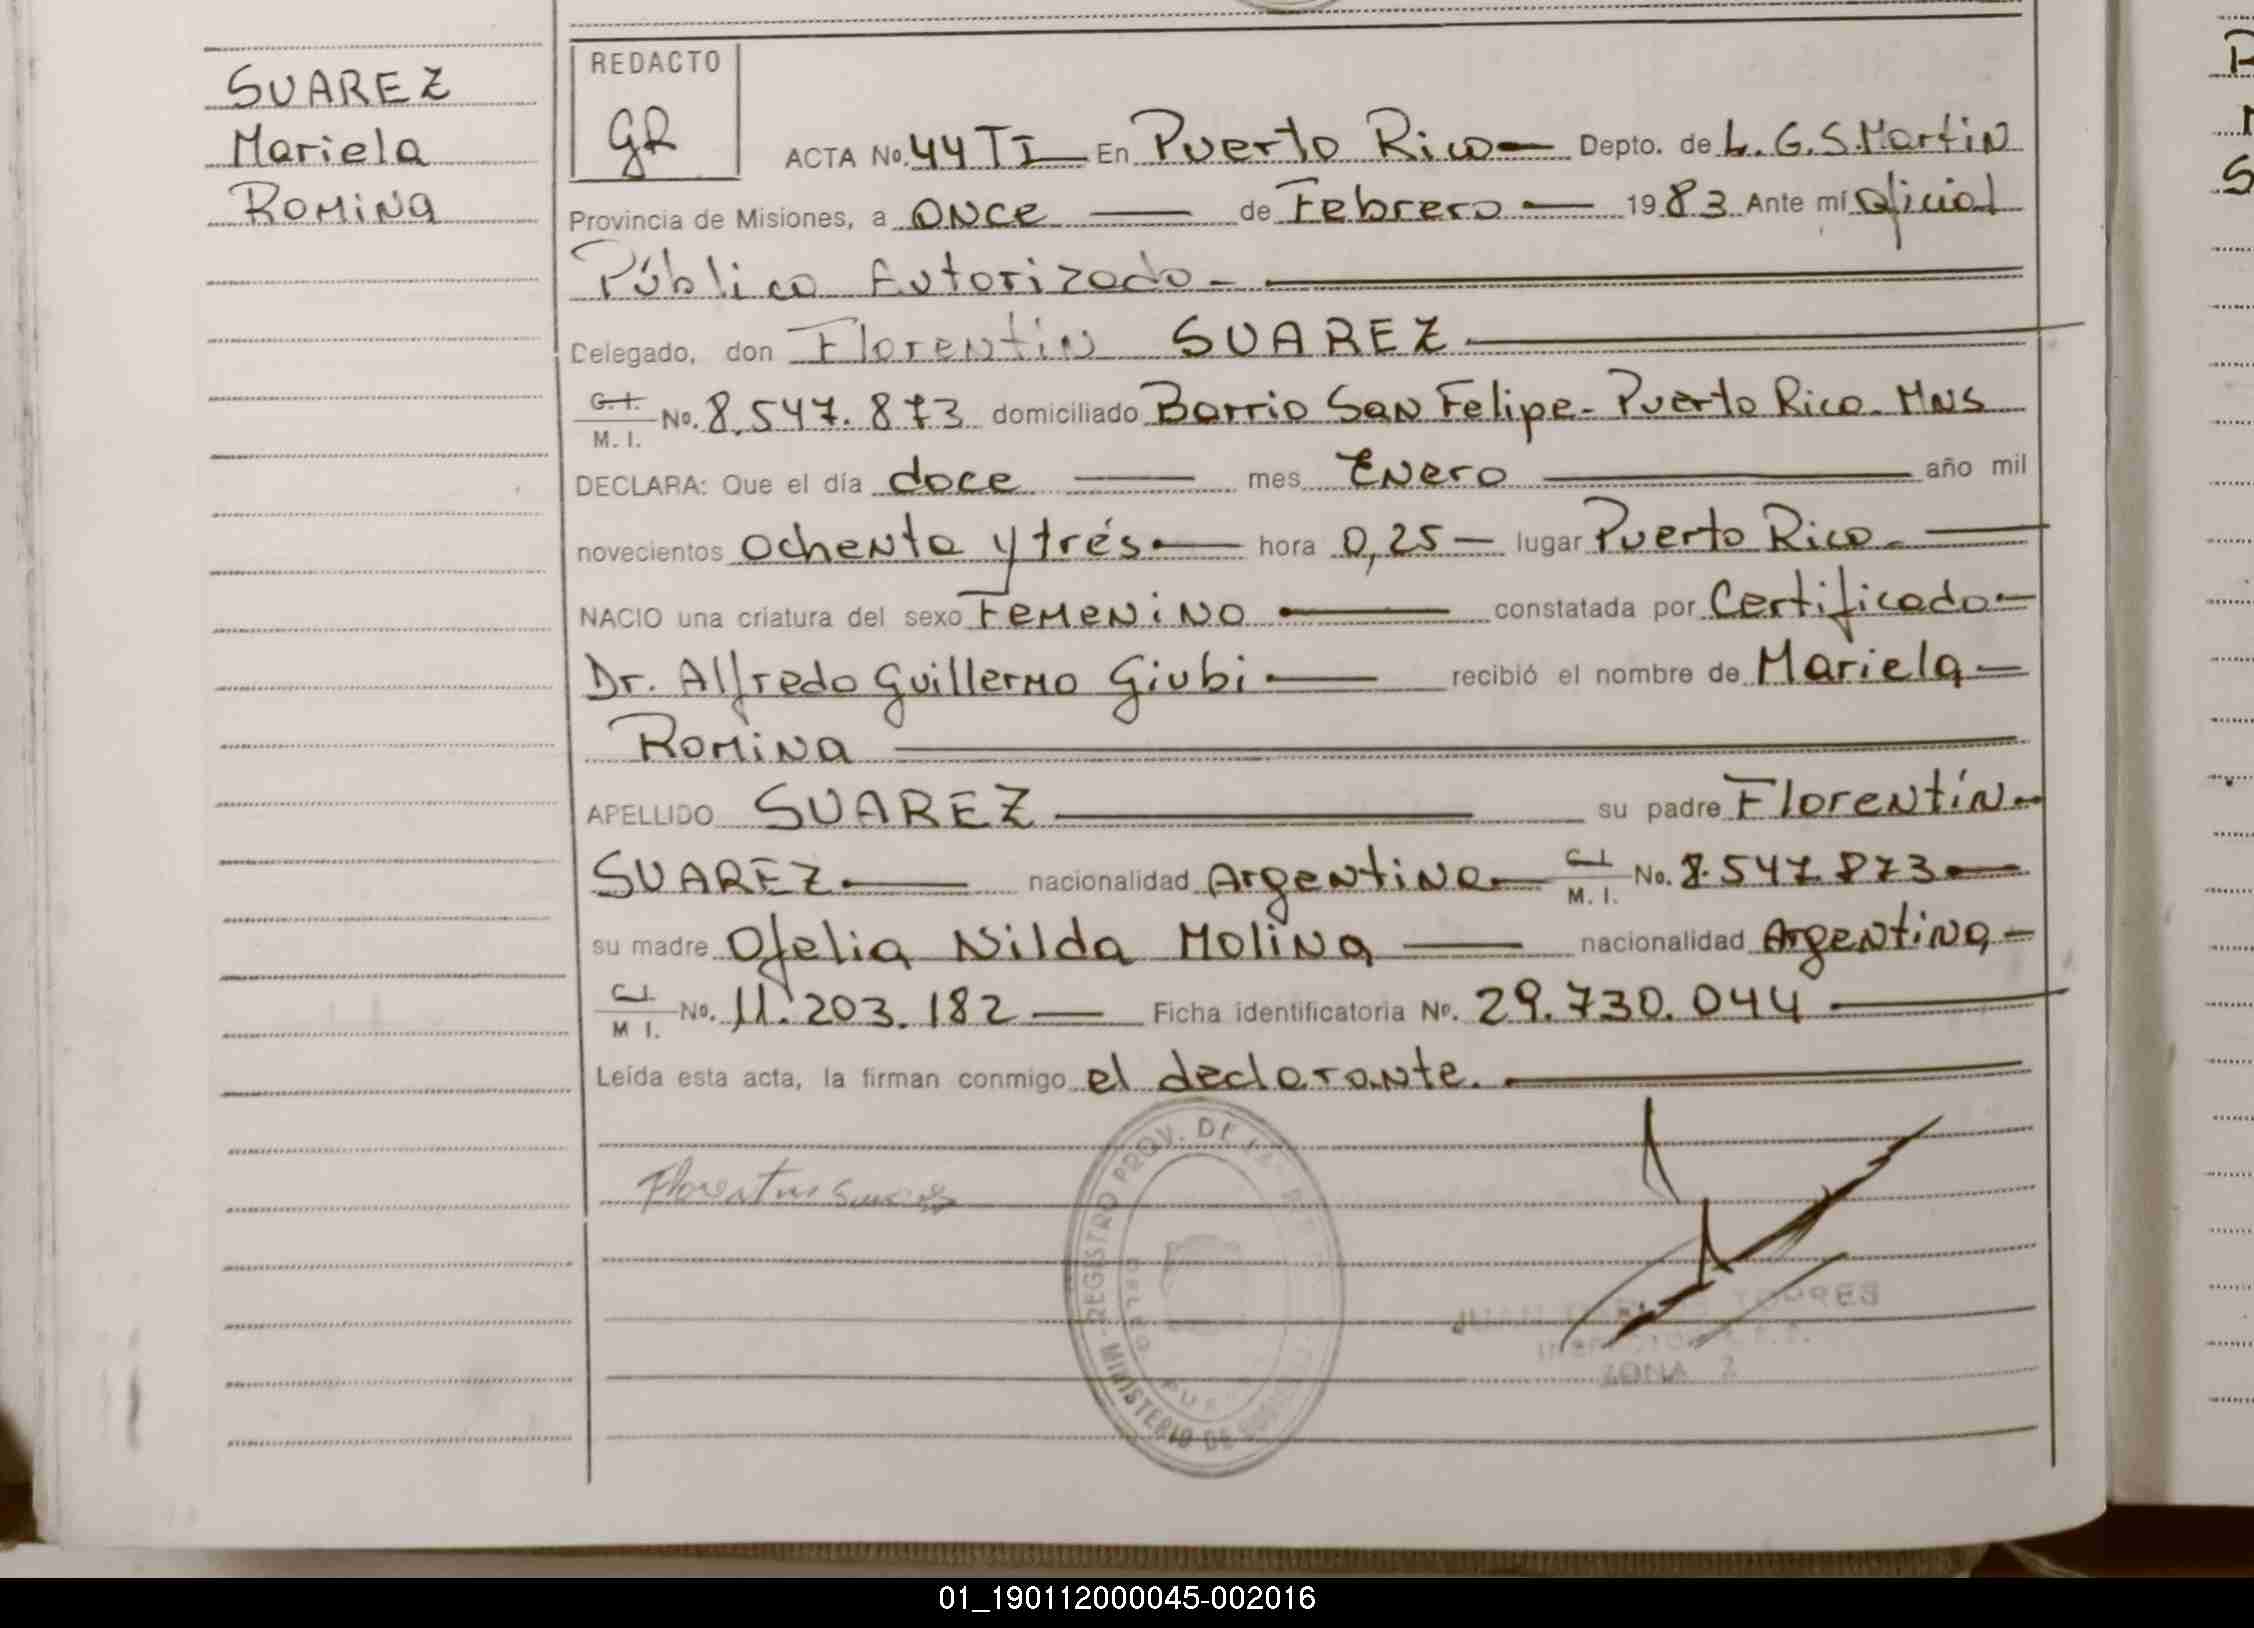 SUAREZ
Mariela
Romina
REDACTO
GR
ACTA No. 44 TI En Puerto Rico Depto. de L. G. S. Martin
Provincia de Misiones, a once de Febrero 1983 Ante mí Oficial
Público Autorizado -
Delegado, don Florentin SUAREZ
C. I. M. I. No. 8.547.873 domiciliado Barrio San Felipe - Puerto Rico - Mns
DECLARA: Que el día doce mes Enero año mil
novecientos ochenta y trés hora 0,25 lugar Puerto Rico.
NACIO una criatura del sexo Femenino constatada por Certificado
Dr. Alfredo Guillermo Giubi recibió el nombre de Mariela
Romina
APELLIDO SUAREZ su padre Florentín
SUAREZ nacionalidad Argentina C. I. M. I. No. 8.547.873
su madre Ofelia Nilda Molina nacionalidad Argentina
C. I. M I. No. 11.203.182 Ficha identificatoria No. 29.730.044
Leída esta acta, la firman conmigo el declarante.
REGISTRO PROV. DE
MINISTERIO DE
Florentin Suarez
ZONA 2
01_190112000045-002016